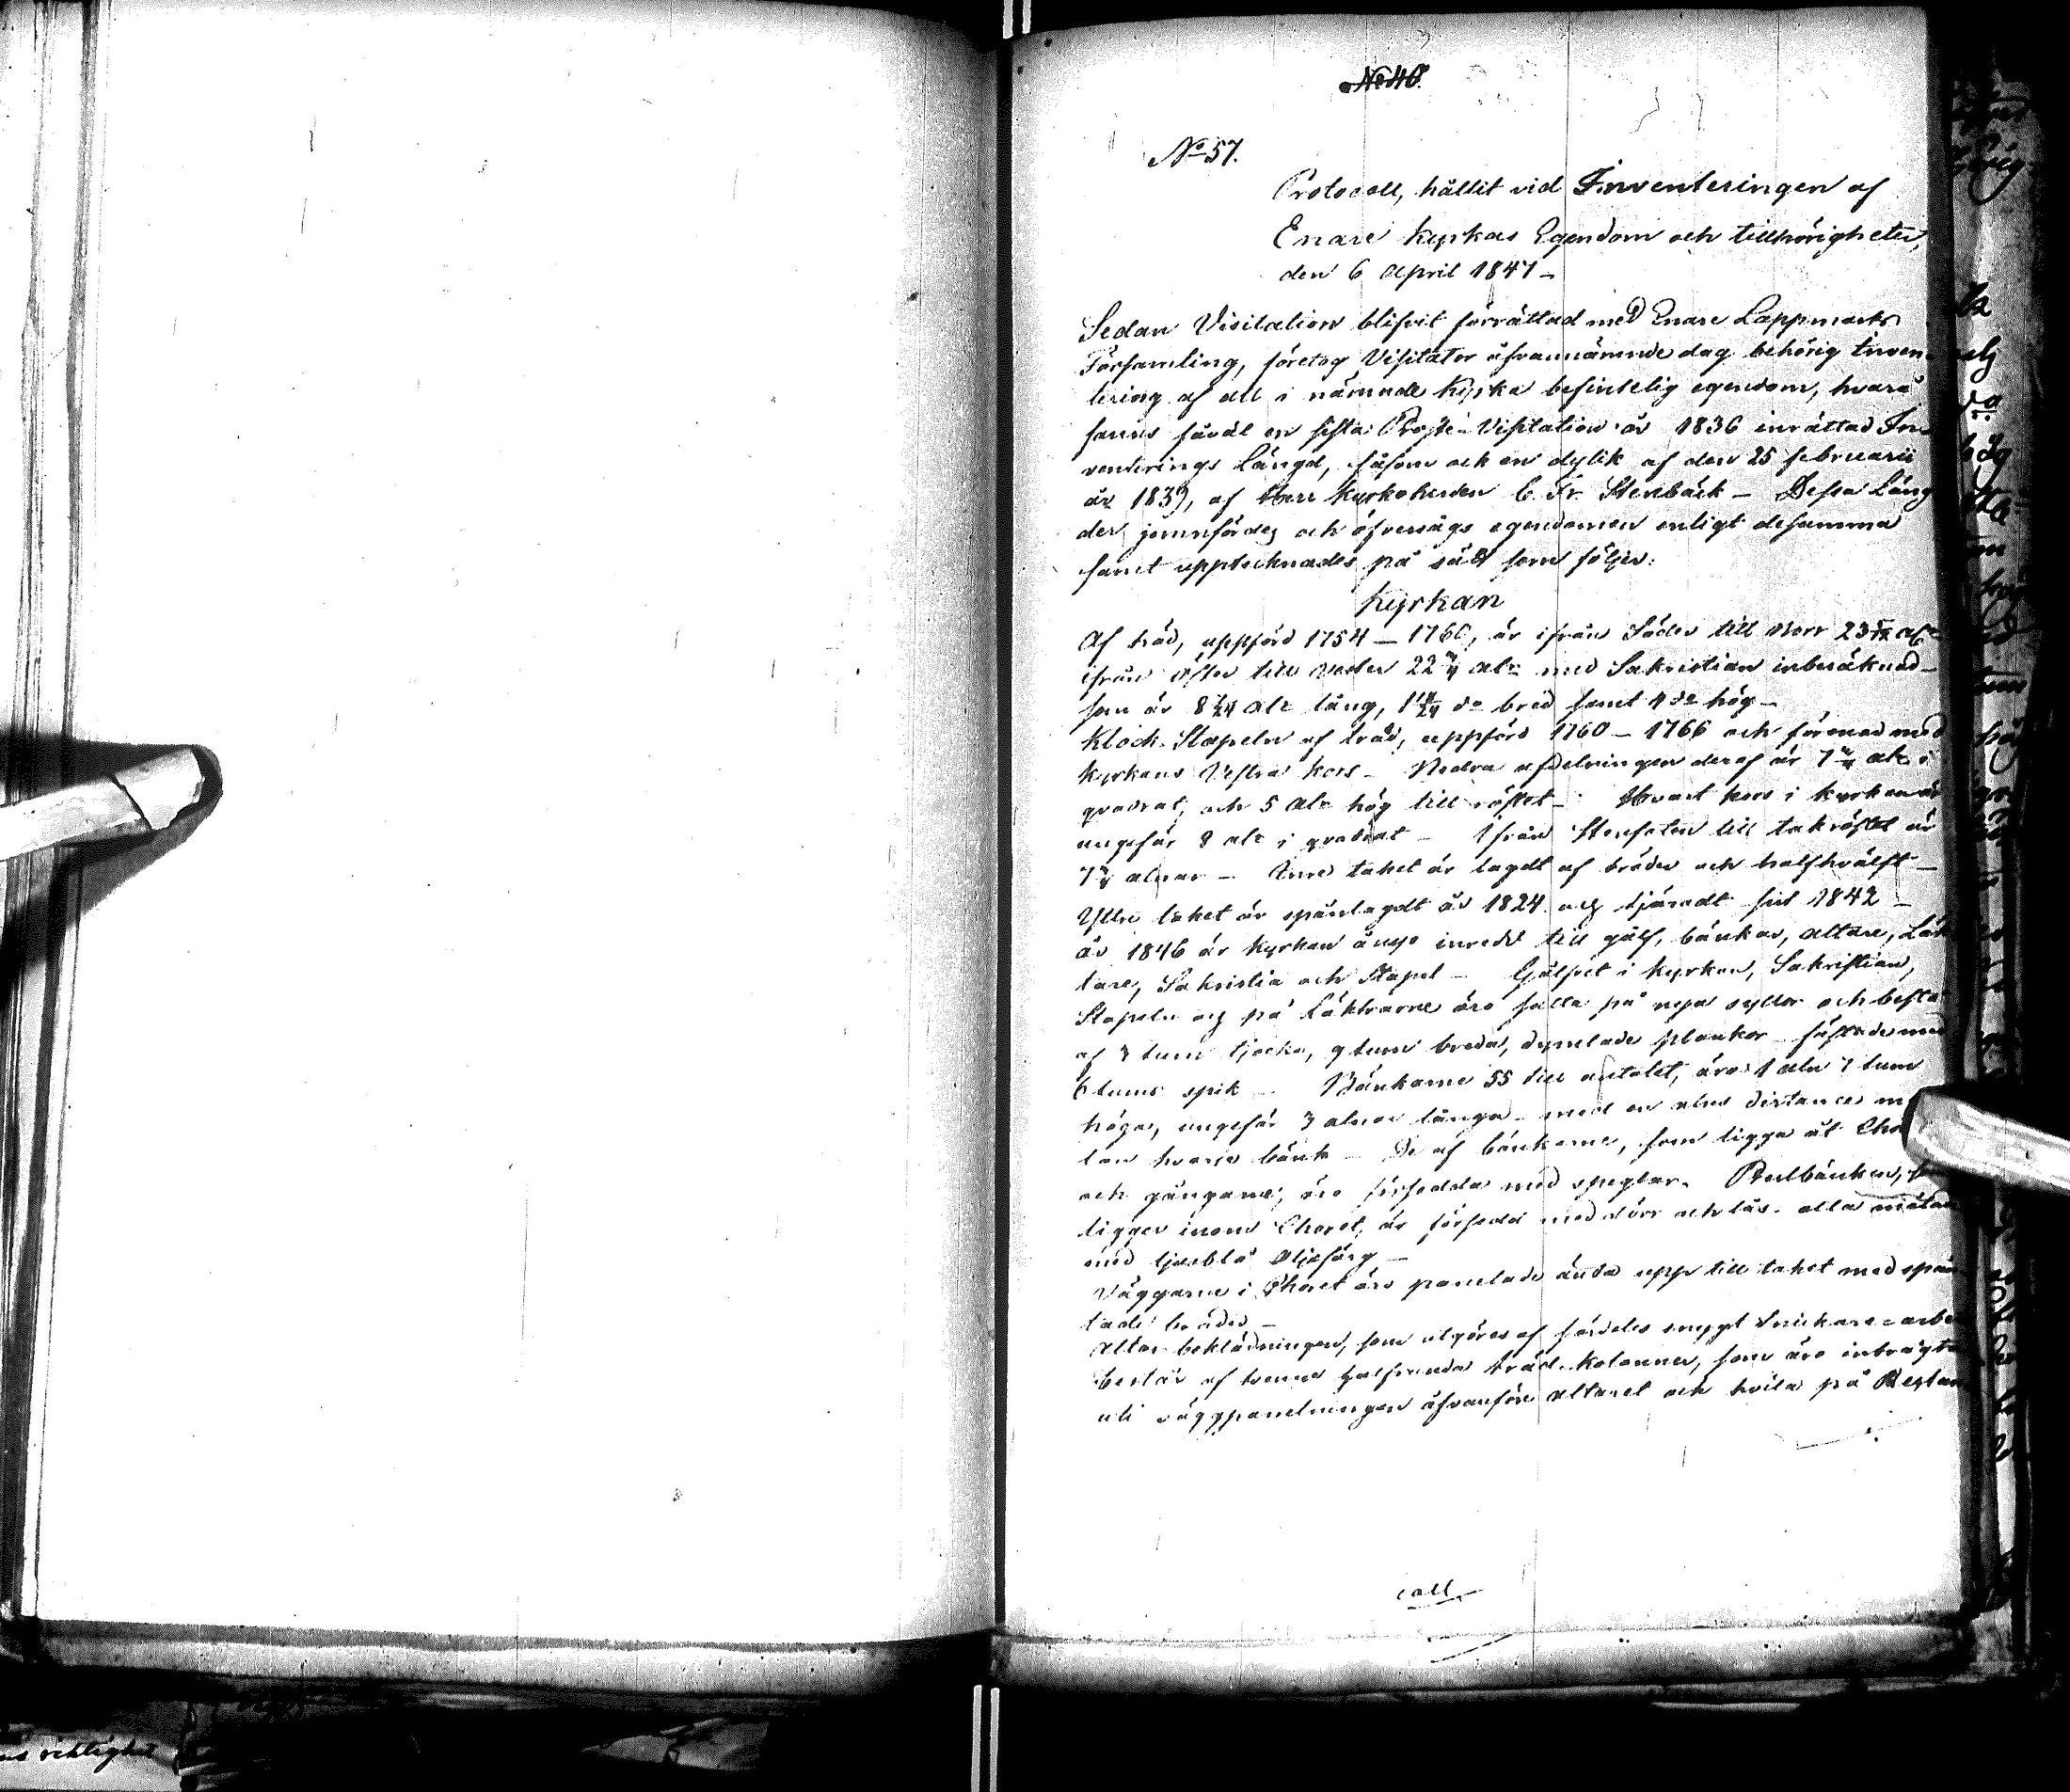 No 46.
No 57.
Protocoll, hållit vid Inventeringen af
Enare Kyrkas Egendom och tillhörigheter,
den 6 April 1847 -
Sedan Visitation blifvit förrättad med Enare Lappmarks
Församling, företog Visitator åfvannämnde dag behörig Inven-
tering af all i nämnde Kyrka befintelig egendom, hvarå
fanns såväl en sista Prost-Visitation år 1836 inrättad In-
venterings Längd, såsom ock en dylik af den 25 februarii
år 1839, af Herr Kyrkoherden C. Fr. Stenbäck - Dessa Läng
der jemnfördes och öfversågs egendomen enligt desamma
samt upptecknades på sätt som följer:
Kyrkan
Af träd, uppförd 1754 - 1760, är ifrån Söder till Norr 23
ifrån Öster till Vester 22 aln med Sakristian inberäknad -
som är 8 aln lång, do bred samt 4 do hög -
Klock-Stapeln af träd, uppförd 1760 - 1766 och förenad med
Kyrkans Vestra kors - Nedra afdelningen deraf är 7 aln i
qvadrat, och 5 aln hög till röstet - Hvart kors i kyrkan är
ungefär 8 aln i qvadrat - Ifrån Stenfoten till takröstet är
7 alnar - Inre taket är lagdt af bräder och halfhvälft -
Yttre taket är spånlagdt år 1824 och tjäradt sist 1842 -
år 1846 är Kyrkan ånyo inredd till golf, bänkar, altare, Läk
tare, Sakristia och Stapel - Golfvet i Kyrkan, Sakristian,
Stapeln och på Läktrarne äro satta på nya syllar och bestå
af 3 tum tjocka, 9 tum breda, dymlade plankor fästade med
6 tums spik - Bänkarne 55 till antalet, äro 1 aln 7 tum
höga, ungefär 3 alnar långa - med en alns distance m
lan hvarje bänk - De af bänkarne, som ligga åt Cho
och gångarne, äro försedda med speglar. Brudbänken, s
ligger inom Choret, är försedd med dörr och lås - alla målade
med ljusblå Oljefärg -
Väggarne i Choret äro panelade ända upp till taket med spån
tade bräder -
Altar-beklädningen, som utgöres af särdeles snyggt Snickare-arbe
består af tvenne halfrunda träd-kolonner, som äro inbragta
uti väggpanelningen åfvanföre altaret och hvila på
call.
ns riktighet